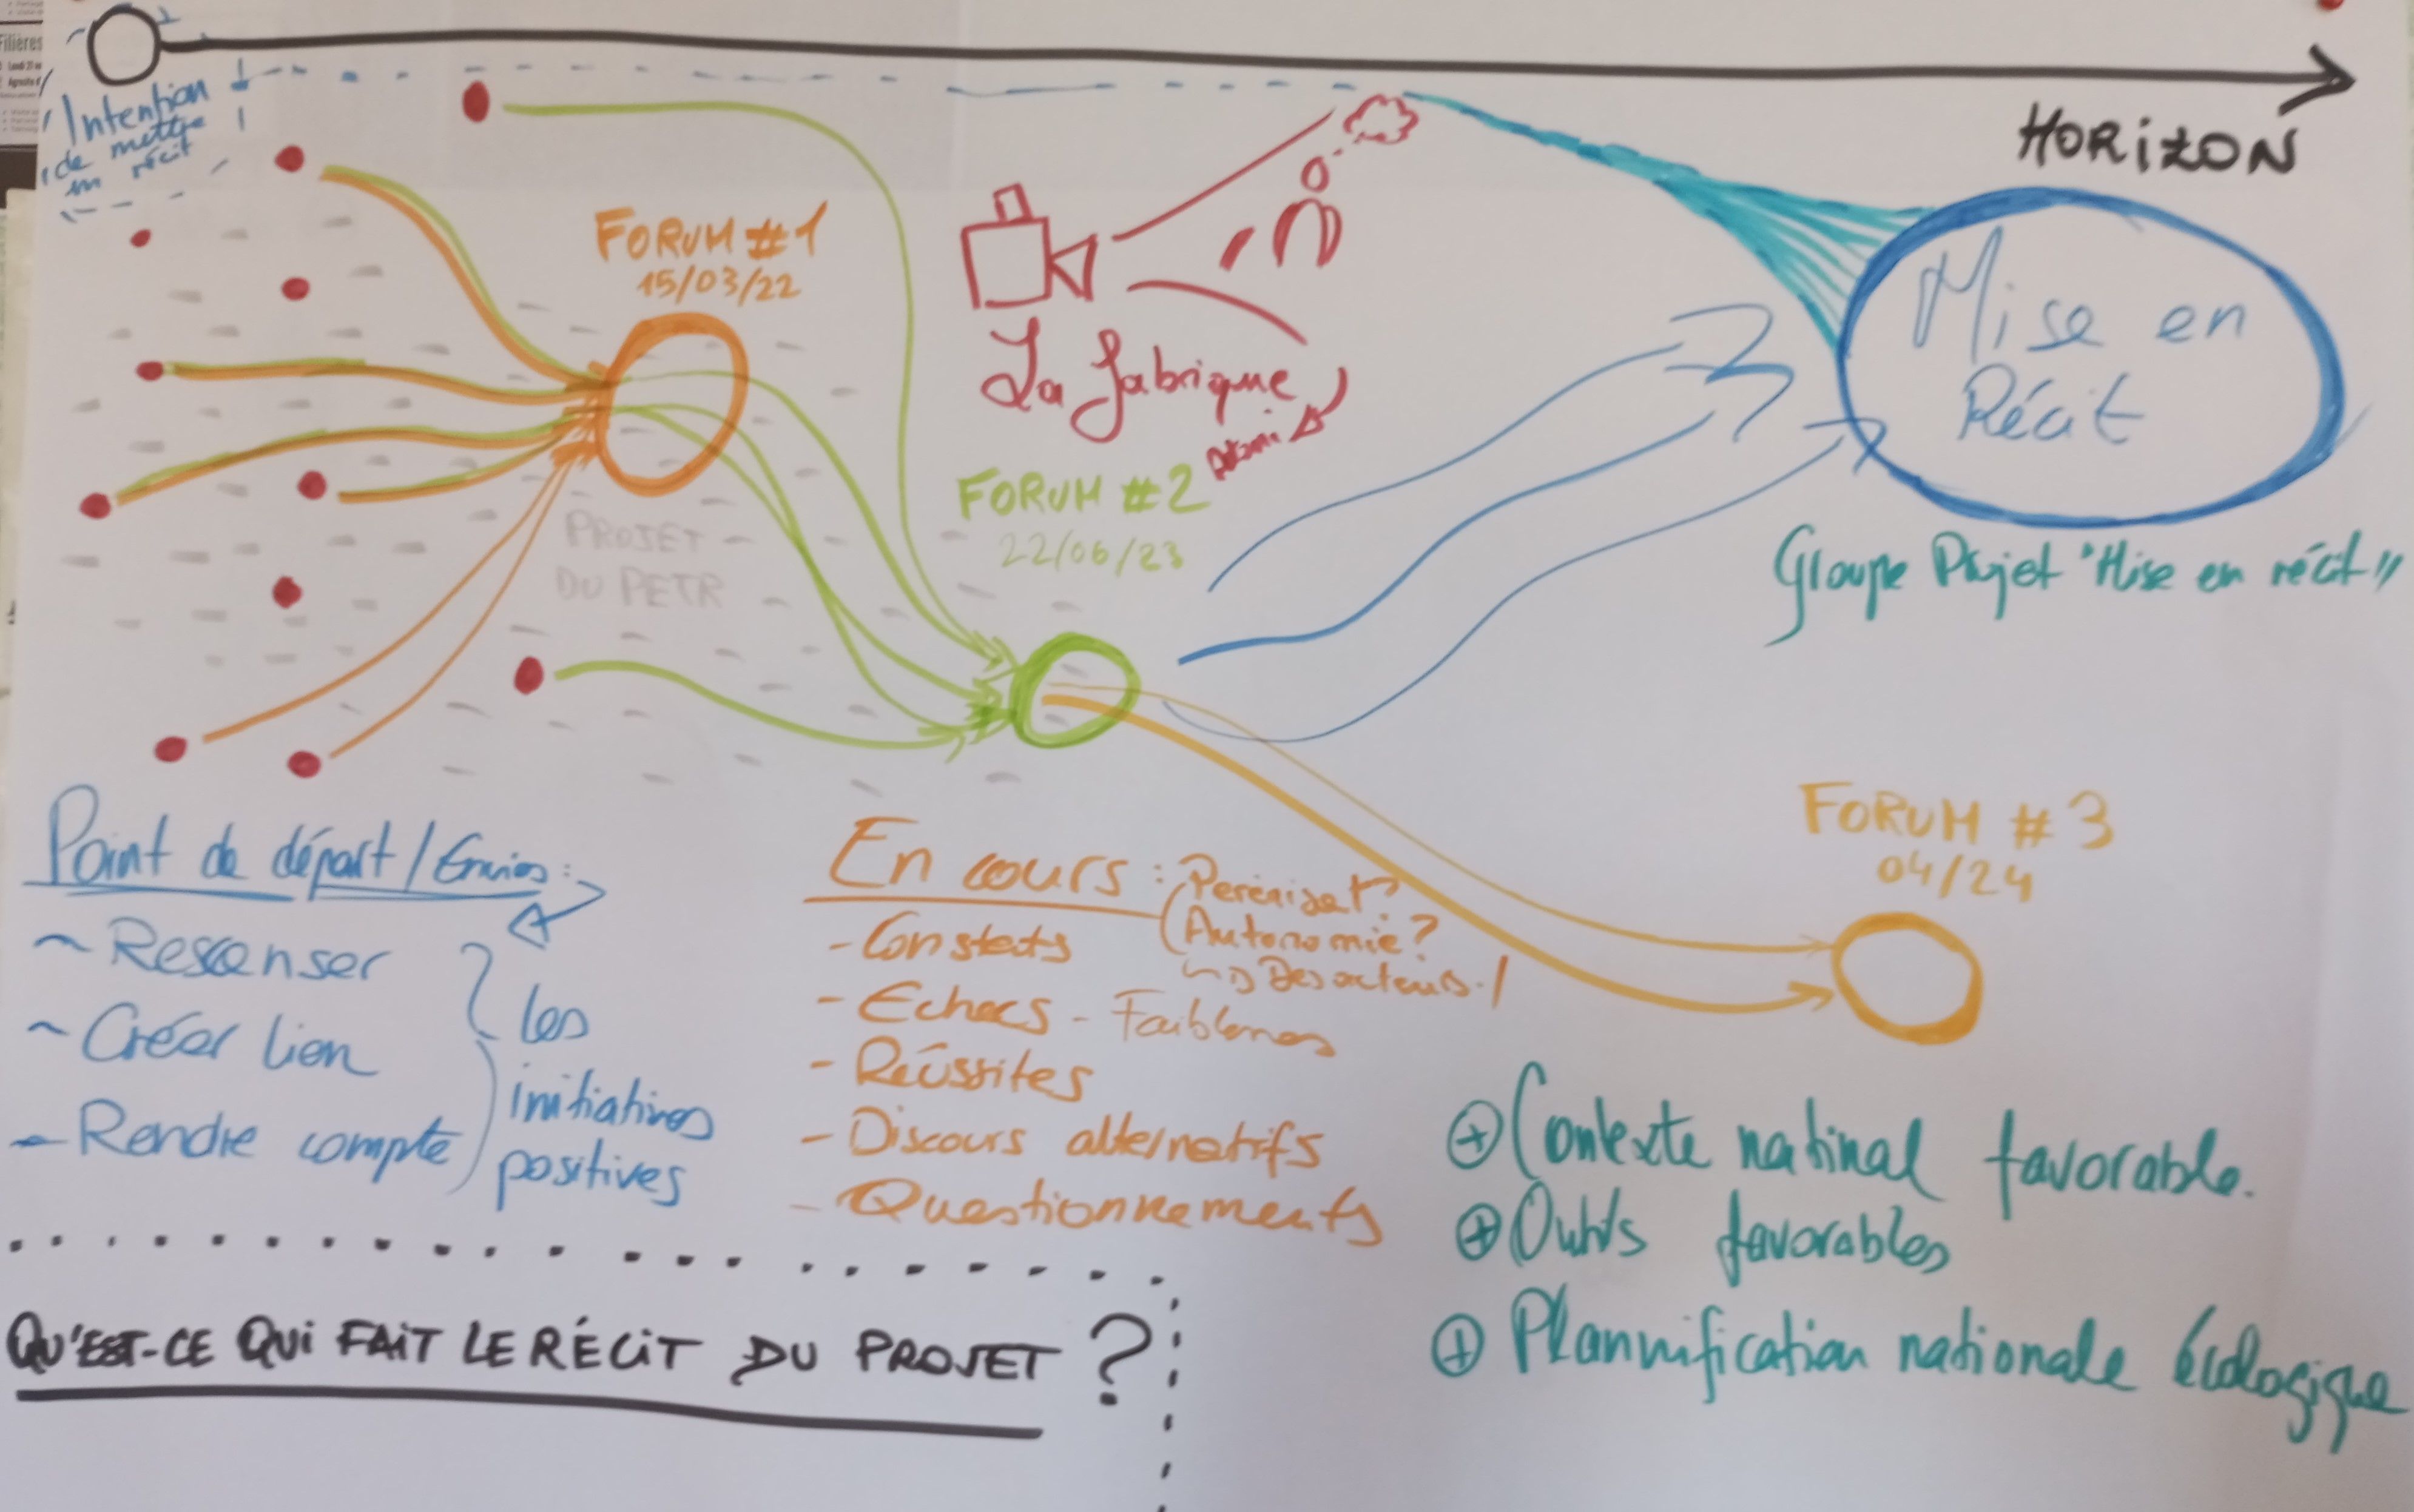 Filières
Intention
de mettre
en récit
HORIZON
FORUM #1
15/03/22
La fabrique
Mise en
Récit
FORUM #2
22/06/23
PROJET
DU PETR
Groupe Projet "Mise en récit"
FORUM #3
04/24
Point de départ / Envies :
~ Rescenser
~ Créer lien
- Rendre compte
les
initiatives
positives
En cours :
- Constats
- Echecs - Faiblesses
- Réussites
- Discours alternatifs
- Questionnements
(Pereniser?
Autonomie?
↳ Des acteurs.)
+ Contexte natinal favorable.
+ Outils favorables
+ Plannification nationale écologique
QU'EST-CE QUI FAIT LE RÉCIT DU PROJET ?